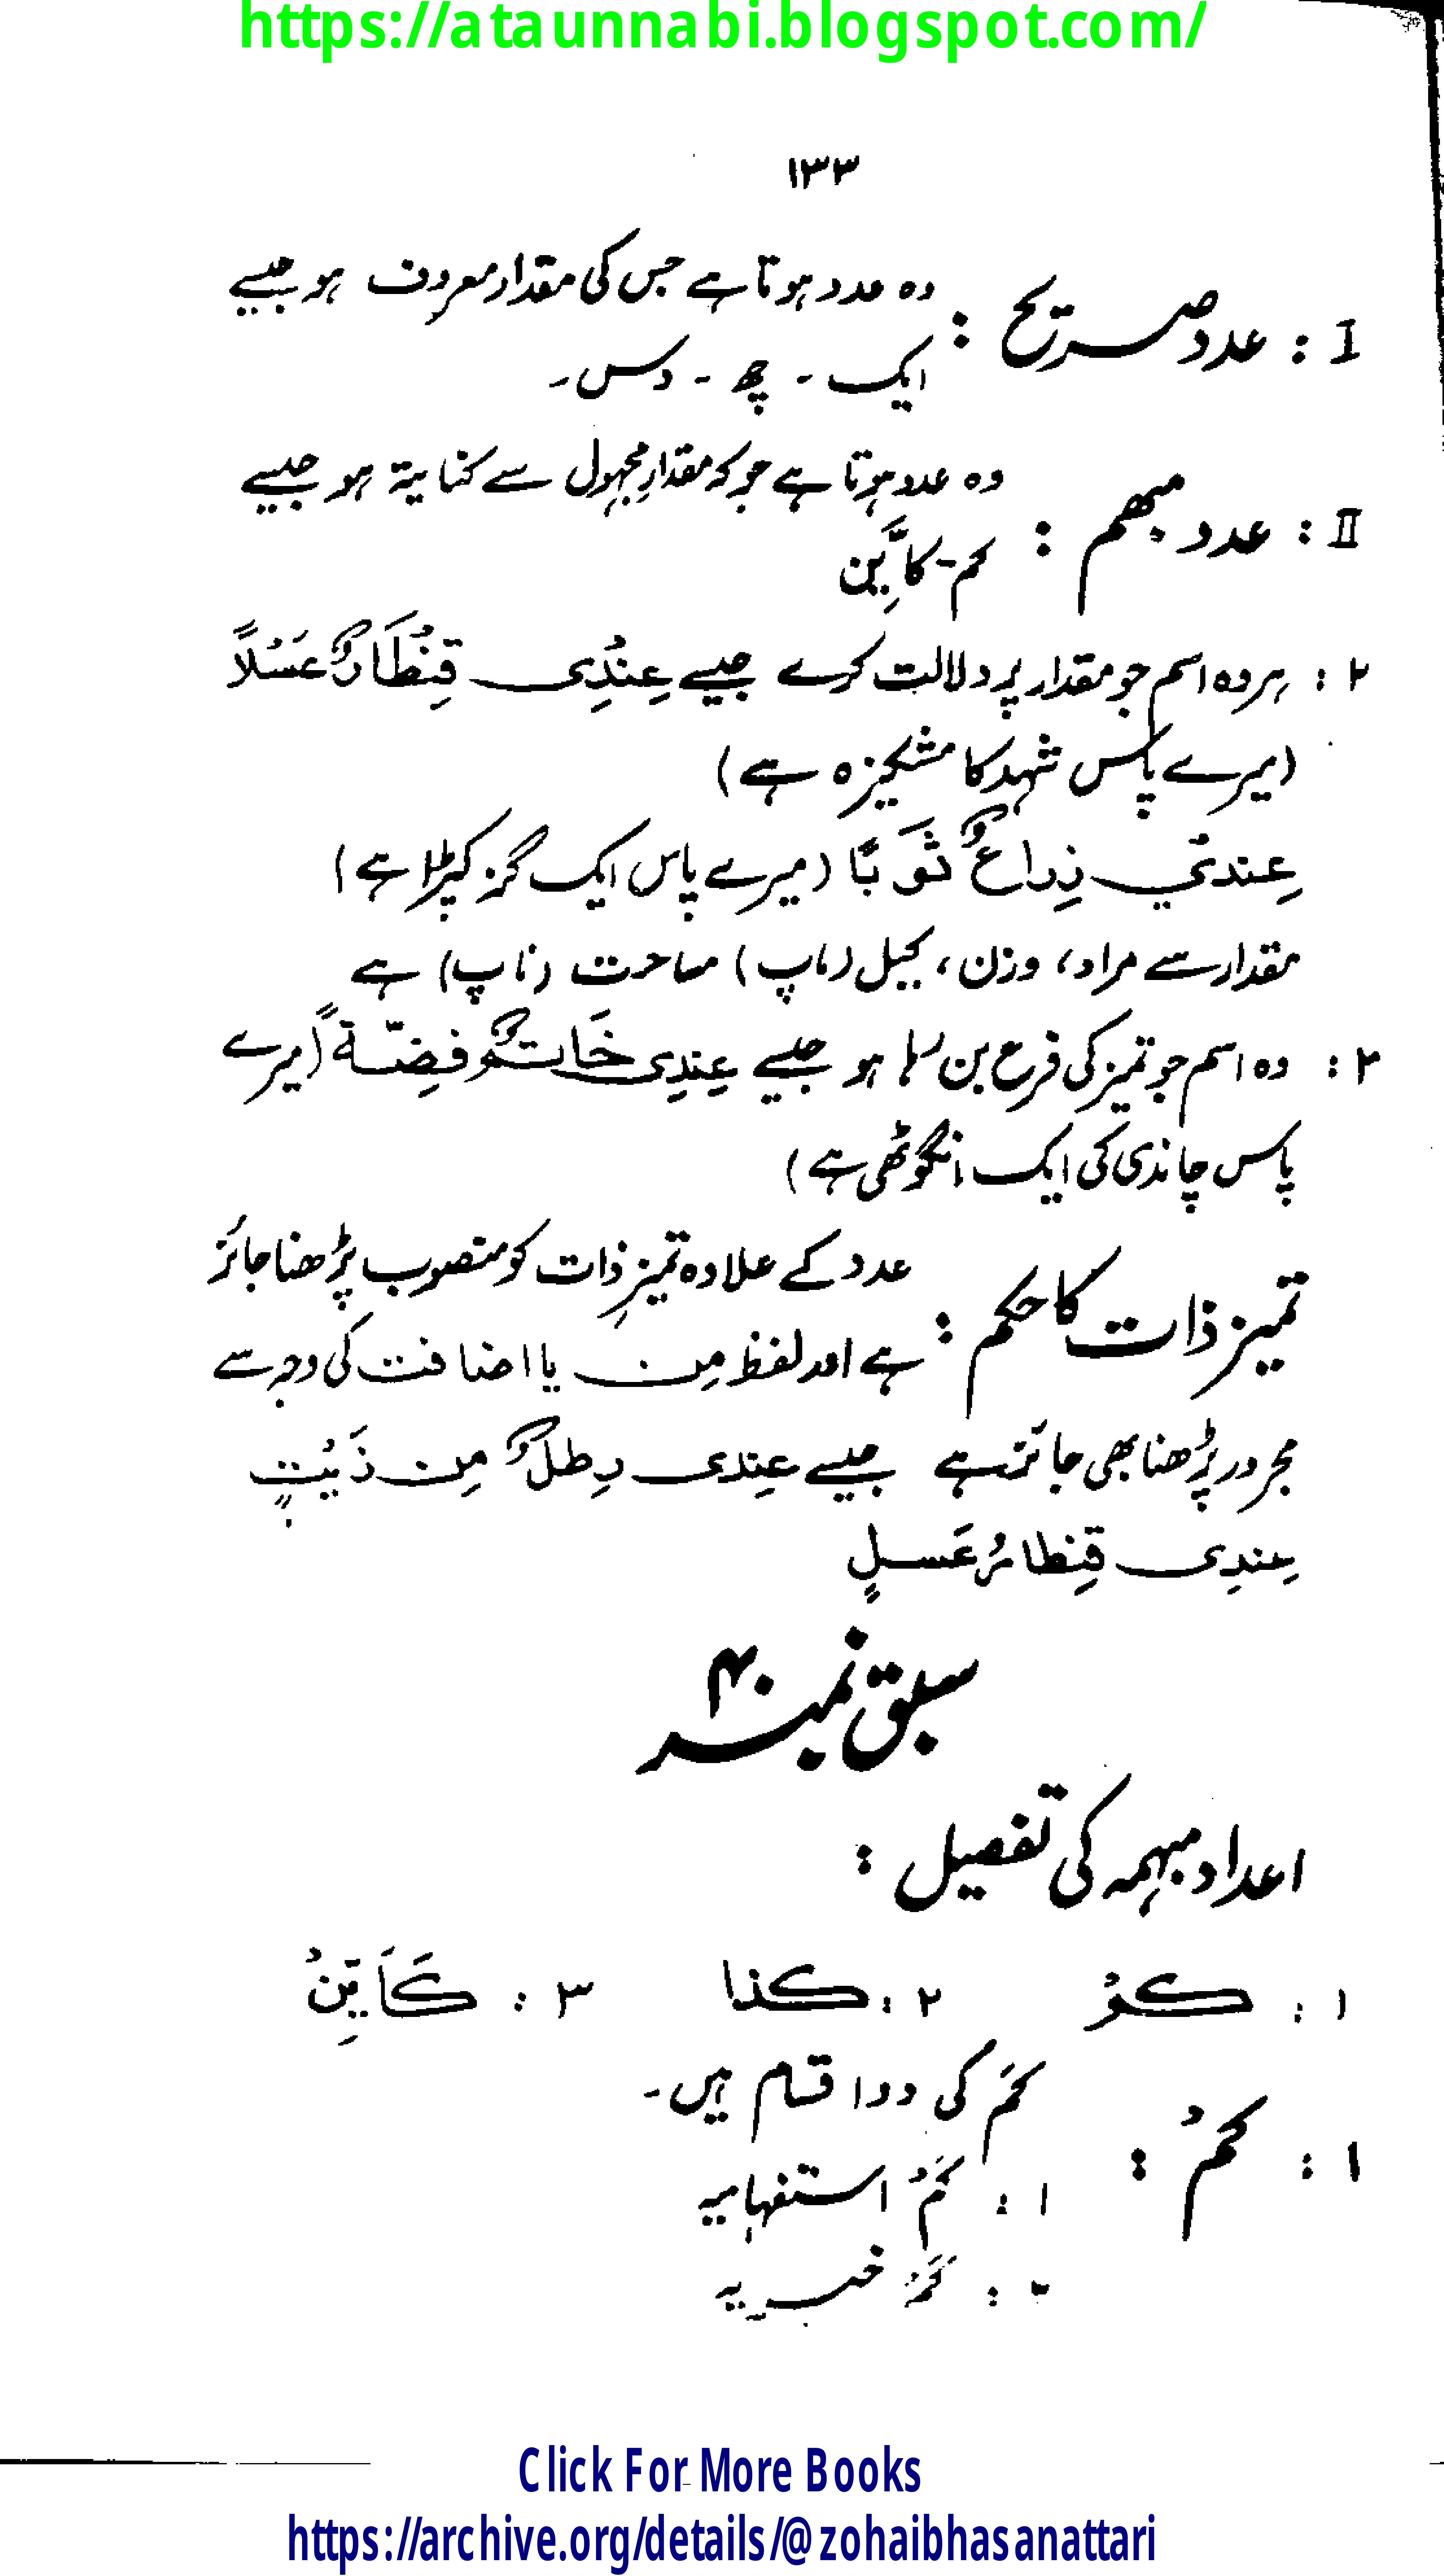 https://ataunnabi.blogspot.com/
۱۳۳
I : عدد صریح : وہ عدد ہوتا ہے جس کی مقدار معروف ہو جیسے
ایک ۔ چھ ۔ دس ۔
II : عدد مبھم : وہ عدد ہوتا ہے جو کہ مقدارِ مجہول سے کنایۃ ہو جیسے
کم - کَاَیِّن
۲ : ہر وہ اسم جو مقدار پر دلالت کرے جیسے عِنْدِی قِنْطَارٌ عَسْلاً
(میرے پاس شہد کا مشکیزہ ہے)
عِندیْ ذِراعٌ ثَوبًا (میرے پاس ایک گز کپڑا ہے)
مقدار سے مراد، وزن، کیل (ماپ) مساحت (ناپ) ہے
۳ : وہ اسم جو تمیز کی فرع بن رہا ہو جیسے عِندِی خَاتمٌ فضِّۃً (میرے
پاس چاندی کی ایک انگوٹھی ہے)
تمیز ذات کا حکم : عدد کے علاوہ تمیزِ ذات کو منصوب پڑھنا جائز
ہے اور لفظ مِن یا اضافت کی وجہ سے
مجرور پڑھنا بھی جائز ہے جیسے عِندی رِطلٌ مِن زَیْتٍ
عِندِی قِنطارُ عَسلٍ
سبق نمبر ۴۰
اعداد مبہمہ کی تفصیل :
۱ : کمْ ۲ : کذا ۳ : کَاَیِّنْ
۱ : کمْ : کَم کی دو اقسام ہیں ۔
۱ : کَمْ استفہامیہ
۲ : کَمْ خبریہ
Click For More Books
https://archive.org/details/@zohaibhasanattari